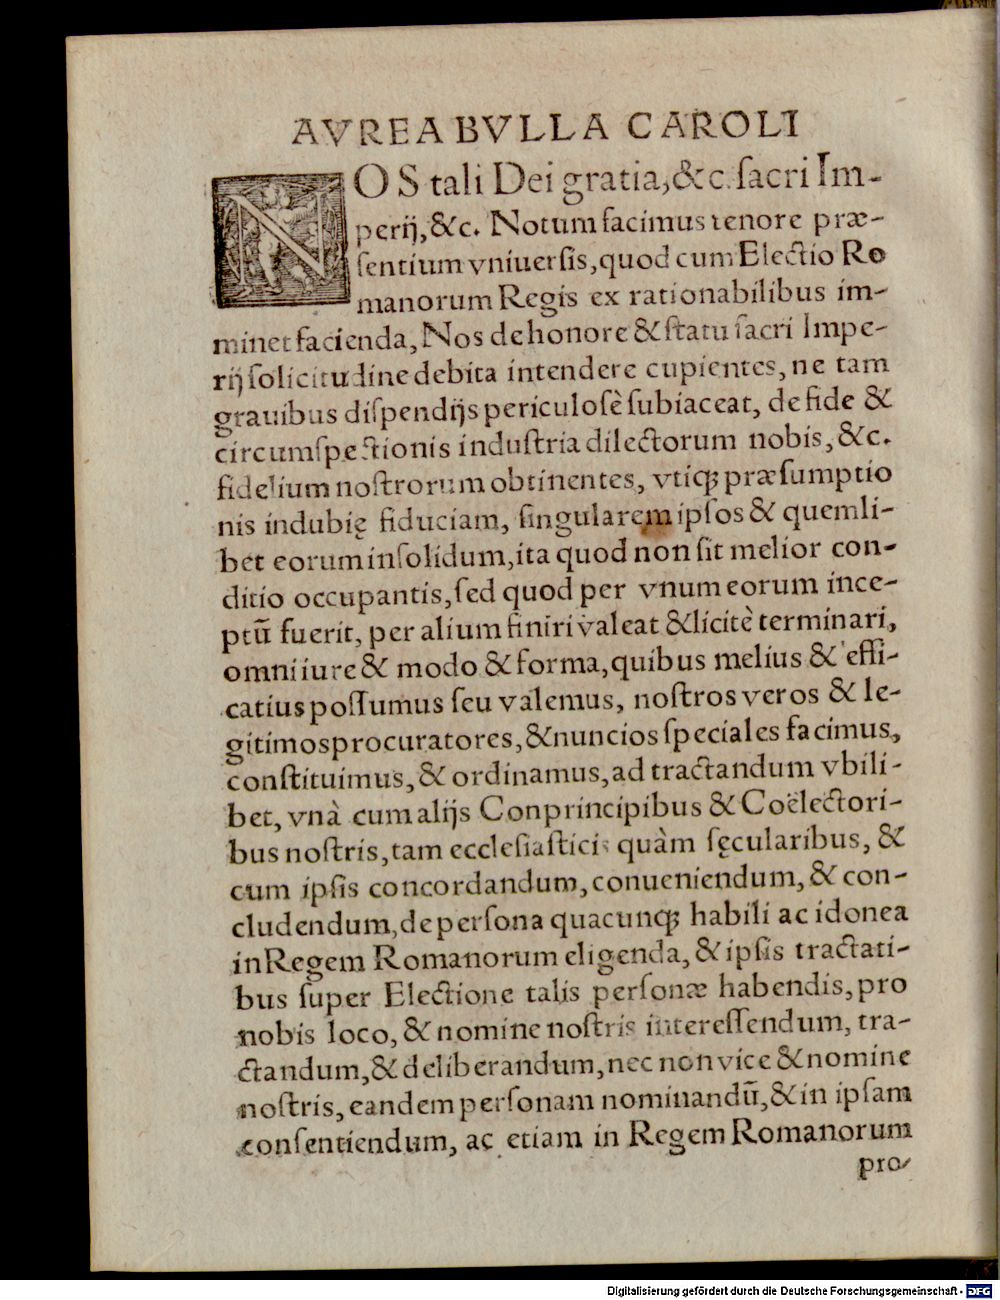 AVREA BVLLA CAROLI
NOS tali Dei gratia, &c. ſacri Im-
perij, &c. Notum facimus tenore præ-
ſentium vniuerſis, quod cum Electio Ro
manorum Regis ex rationabilibus im-
minet facienda, Nos de honore & ſtatu ſacri Impe-
rij ſolicitudine debita intendere cupientes, ne tam
grauibus diſpendijs periculoſè ſubiaceat, de fide &
circumſpectionis induſtria dilectorum nobis, &c.
fidelium noſtrorum obtinentes, vtiqꝫ præſumptio
nis indubię fiduciam, ſingularem ipſos & quemli-
bet eorum inſolidum, ita quod non ſit melior con-
ditio occupantis, ſed quod per vnum eorum ince-
ptū fuerit, per alium finiri valeat & licitè terminari,
omni iure & modo & forma, quibus melius & effi-
catius poſſumus ſeu valemus, noſtros veros & le-
gitimos procuratores, & nuncios ſpeciales facimus,
conſtituimus, & ordinamus, ad tractandum vbili-
bet, vnà cum alijs Conprincipibus & Coëlectori-
bus noſtris, tam eccleſiaſticis quàm ſęcularibus, &
cum ipſis concordandum, conueniendum, & con-
cludendum, de perſona quacunqꝫ habili ac idonea
in Regem Romanorum eligenda, & ipſis tractati-
bus ſuper Electione talis perſonæ habendis, pro
nobis loco, & nomine noſtris intereſſendum, tra-
ctandum, & deliberandum, nec non vice & nomine
noſtris, eandem perſonam nominandū, & in ipſam
conſentiendum, ac etiam in Regem Romanorum
pro-
Digitalisierung gefördert durch die Deutsche Forschungsgemeinschaft - DFG